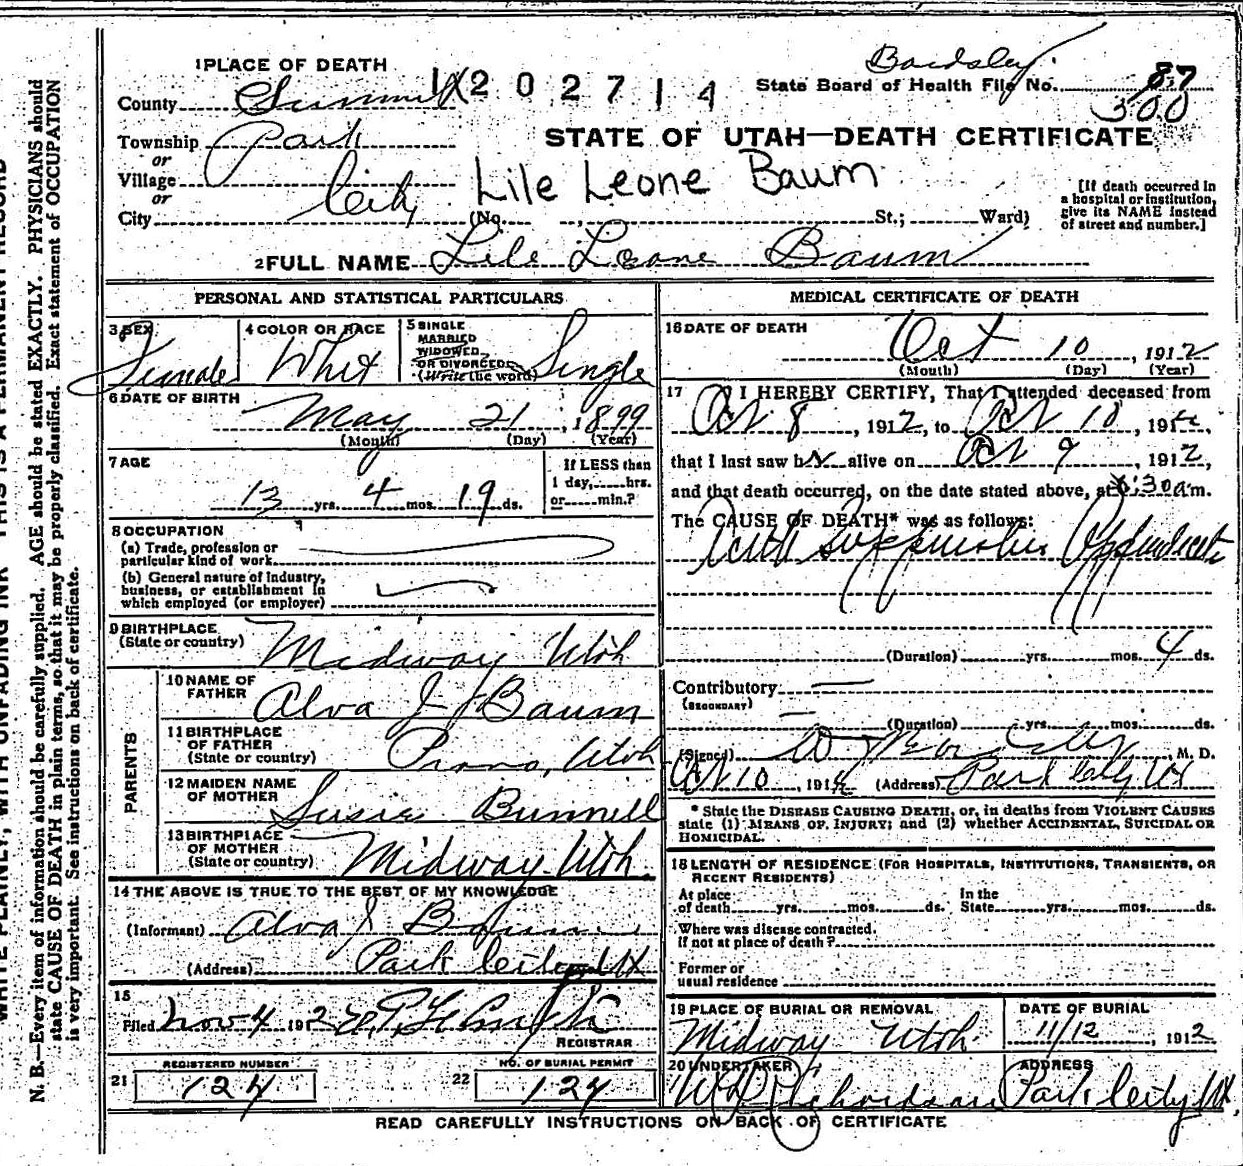 Bardsley
1 PLACE OF DEATH
1202714
State Board of Health File No. 87
300
County Summit
STATE OF UTAH—DEATH CERTIFICATE
Township Park
or
Village
or
City City
Lile Leone Baum
(No. , St.; Ward)
[If death occurred in
a hospital or institution,
give its NAME instead
of street and number.]
2 FULL NAME Lile Leone Baum
PERSONAL AND STATISTICAL PARTICULARS
3 SEX Female
4 COLOR OR RACE Whit
5 SINGLE
MARRIED
WIDOWED
OR DIVORCED
(Write the word) Single
6 DATE OF BIRTH
May 21, 1899
(Month) (Day) (Year)
7 AGE
13 yrs. 4 mos. 19 ds.
If LESS than
1 day, hrs.
or min.?
8 OCCUPATION
(a) Trade, profession or
particular kind of work
(b) General nature of industry,
business, or establishment in
which employed (or employer)
9 BIRTHPLACE
(State or country) Midway Utah
PARENTS
10 NAME OF
FATHER Alva J Baum
11 BIRTHPLACE
OF FATHER
(State or country) Provo, Utah
12 MAIDEN NAME
OF MOTHER Susie Bunnell
13 BIRTHPLACE
OF MOTHER
(State or country) Midway Utah.
14 THE ABOVE IS TRUE TO THE BEST OF MY KNOWLEDGE
(Informant) Alva J Baum
(Address) Park City Ut
15
Filed Nov 4 1912
REGISTRAR
REGISTERED NUMBER
21 124
NO. OF BURIAL PERMIT
22 124
MEDICAL CERTIFICATE OF DEATH
16 DATE OF DEATH
Oct 10, 1912
(Month) (Day) (Year)
17 I HEREBY CERTIFY, That I attended deceased from
Oct 8, 1912, to Oct 10, 1912,
that I last saw her alive on Oct 9, 1912,
and that death occurred, on the date stated above, at 6:30 a m.
The CAUSE OF DEATH* was as follows:
(Duration) yrs. mos. 4 ds.
Contributory
(SECONDARY)
(Duration) yrs. mos. ds.
(Signed) M. D.
Oct 10, 1912 (Address) Park City Ut
* State the DISEASE CAUSING DEATH, or, in deaths from VIOLENT CAUSES
state (1) MEANS OF INJURY; and (2) whether ACCIDENTAL, SUICIDAL OR
HOMICIDAL.
18 LENGTH OF RESIDENCE (FOR HOSPITALS, INSTITUTIONS, TRANSIENTS, OR
RECENT RESIDENTS)
At place
of death yrs. mos. ds.
In the
State yrs. mos. ds.
Where was disease contracted,
if not at place of death?
Former or
usual residence
19 PLACE OF BURIAL OR REMOVAL
Midway Utah.
DATE OF BURIAL
11/12, 1912
20 UNDERTAKER
ADDRESS
Park City Ut.
READ CAREFULLY INSTRUCTIONS ON BACK OF CERTIFICATE
N. B.—Every item of information should be carefully supplied. AGE should be stated EXACTLY. PHYSICIANS should
state CAUSE OF DEATH in plain terms, so that it may be properly classified. Exact statement of OCCUPATION
is very important. See instructions on back of certificate.